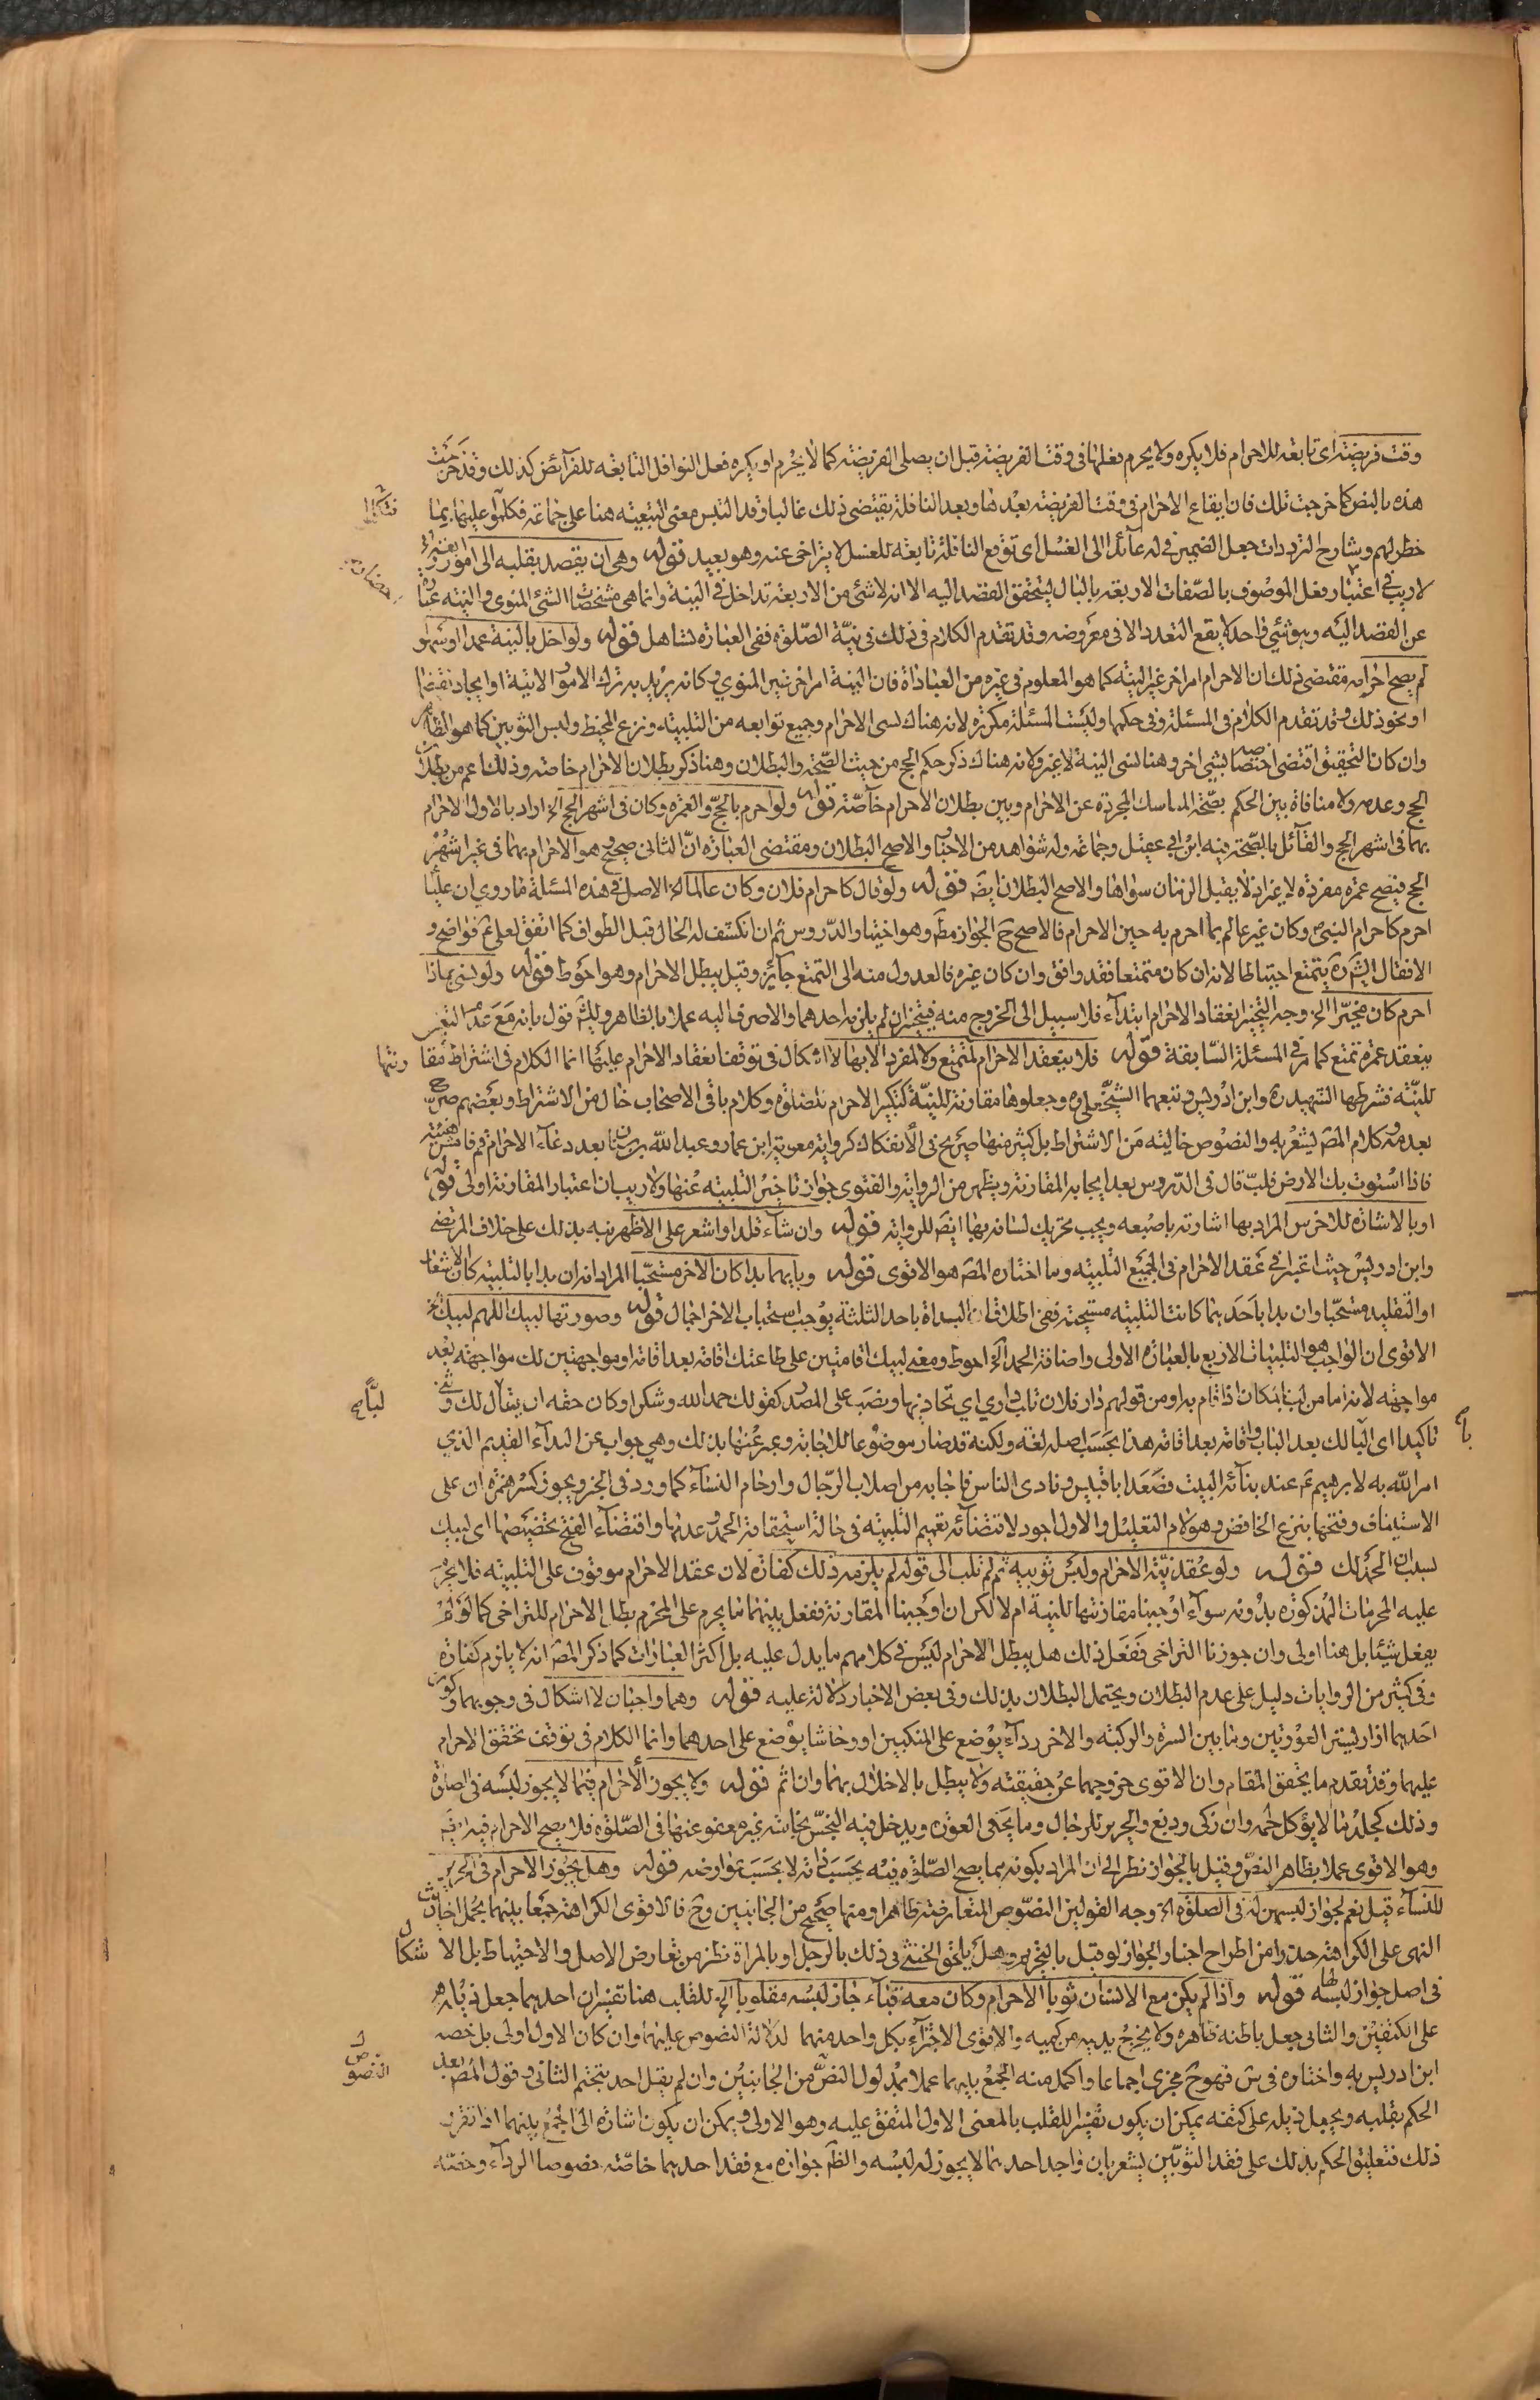 وقت فريضة اى تابعة للاحرام فلا يكره ولا يحرم فعلها فى وقت الفريضة قبل ان يصلى الفريضة كما لا يحرم او يكره فعل النوافل التابعة للفرآئض كذلك وقد خرجت
هذه بالنص كما خرجت تلك فان ايقاع الاحرام فى وقت الفريضة بعدها وبعد النافلة يقتضى ذلك غالبا وقد التبس معنى التبعية هنا على جماعة فتكلموا عليها بما
خطر لهم وشارح الترددات جعل الضمير فى له عآئدا الى الغسل اى توقع النافلة تابعة للغسل لا يتراخى عنه وهو بعيد قوله وهى ان يقصد بقلبه الى امور اربعة
لا ريب فى اعتبار فعل الموصوف بالصفات الاربعة بالبال ليتحقق القصد اليه الا انه لا شئ من الاربعة تداخل فى النية وانما هى مشخصات الشئ المنوى والنية عبارة
عن القصد اليه وهو شئ واحد لا يقع التعدد الا فى معروضه وقد تقدم الكلام فى ذلك فى نية الصلوة ففى العبارة تساهل قوله ولو اخل بالنية عمدا او سهوا
لم يصح احرامه مقتضى ذلك ان الاحرام امر اخر غير النية كما هو المعلوم فى غيره من العبادات فان النية امر اخر غير المنوي وكانه يريد به ترك الامور الاتية او ايجاد نقيضها
او نحو ذلك وقد تقدم الكلام فى المسئلة وفى حكمها وليست المسئلة مكررة لانه هناك نسى الاحرام وجميع توابعه من التلبية ونزع المخيط ولبس الثوبين كما هو الظاهر
وان كان التحقيق اقتضى اختصاصه بشئ اخر وهنا نسى النية لا غير ولانه هناك ذكر حكم الحج من حيث الصحة والبطلان وهنا ذكر بطلان الاحرام خاصة وذلك اعم من بطلان
الحج وعدمه ولا منافاة بين الحكم بصحة المناسك المجردة عن الاحرام وبين بطلان الاحرام خآصة قوله ولو احرم بالحج والعمرة وكان فى اشهر الحج الخ اراد بالاول الاحرام
بهما فى اشهر الحج والقآئل بالصحة فيه ابن ابي عقيل وجماعة وله شواهد من الاخبار والاصح البطلان ومقتضى العبارة ان الثانى صحيح وهو الاحرام بهما فى غير اشهر
الحج فيصح عمرة مفردة لا غير اذ لا يقبل الزمان سواها والاصح البطلان ايضا قوله ولو قال كاحرام فلان وكان عالما الخ الاصل فى هذه المسئلة ما روي ان عليا
احرم كاحرام النبى وكان غير عالم بما احرم به حين الاحرام فالاصح ح الجواز مطلقا وهو اختيار الدروس ثم ان انكشف له الحال قبل الطواف كما اتفق لعلى ع فواضح و
الا فقال الشيخ ره يتمتع احتياطا لانه ان كان متمتعا فقد وافق وان كان غيره فالعدول منه الى التمتع جآئز وقيل يبطل الاحرام وهو احوط قوله ولو نسى بماذا
احرم كان مخيرا الخ وجه التخيير انعقاد الاحرام ابتدآء فلا سبيل الى الخروج منه فيتخير ان لم يلزمه احدهما والا صرف اليه عملا بالظاهر وللشيخ قول بانه مع عدم التعيين
ينعقد عمرة تمتع كما مر فى المسئلة السابقة قوله فلا ينعقد الاحرام لمتمتع ولا لمفرد الا بها لا اشكال فى توقف انعقاد الاحرام عليها انما الكلام فى اشتراط مقارنتها
للنية فشرطها الشهيد ره وابن ادريس وتبعهما الشيخ على ره وجعلوها مقارنة للنية كتكبير الاحرام للصلوة وكلام باقى الاصحاب خال من الاشتراط وبعضهم صرح
بعدمه وكلام المص ليشعر به والنصوص خالية من الاشتراط بل كثير منها صريح فى الانفكاك كرواية معوية ابن عمار وعبد الله بن سنان بعد دعآء الاحرام قم فامش هنيئة
فاذا استوت بك الارض فلب قال فى الدروس بعد ايجابه المقارنة ويظهر من الرواية والفتوى جواز تاخير التلبية عنها ولا ريب ان اعتبار المقارنة اولى قوله
او بالاشارة للاخرس المراد بها اشارته باصبعه ويجب تحريك لسانه بها ايضا للرواية قوله وان شآء قلد او اشعر على الاظهر نبه بذلك على خلاف المرتضى
وابن ادريس حيث اعتبرا فى عقد الاحرام فى الجميع التلبية وما اختاره المص هو الاقوى قوله وبايهما بدا كان الاخر مستحبا المراد انه ان بدا بالتلبية كان الاشعار
او التقليد مستحبا وان بدا باحدهما كانت التلبية مستحبة ففى اطلاق ان البداة باحد الثلثة يوجب استحباب الاخر اجمال قوله وصورتها لبيك اللهم لبيك الخ
الاقوى ان الواجب هو التلبيات الاربع بالعبارة الاولى واضافة الحمد الخ احوط ومعنى لبيك اقامتين على طاعتك اقامة بعد اقامة او مواجهتين لك مواجهة بعد
مواجهة لانه اما من لب بالمكان اذا قام به او من قولهم دار فلان تلب داري اي تحاذيها ونصب على المصدر كقولك حمدا لله وشكرا وكان حقه ان يقال لك وثنى
تاكيدا اى البابا لك بعد الباب واقامة بعد اقامة هذا بحسب اصله لغة ولكنه قد صار موضوعا للاجابة وعبر عنها بذلك وهي جواب عن الندآء القديم الذي
امر الله به لابرهيم ع عند بنآئه البيت فصعد ابا قبيس ونادى الناس فاجابه من اصلاب الرجال وارحام النسآء كما ورد فى الخبر ويجوز كسر همزة ان على
الاستيناف وفتحها بنزع الخافض وهو لام التعليل والاول اجود لاقتضآئه تعميم التلبية فى حالة استحقاقه الحمد وعدمها واقتضآء الفتح تخصيصها اى لبيك
بسبب ان الحمد لك قوله ولو عقد نية الاحرام ولبس ثوبيه ثم لم يلب الى قوله لم يلزمه ذلك كفارة لان عقد الاحرام موقوف على التلبية فلا يحرم
عليه المحرمات المذكورة بدونه سوآء اوجبنا مقارنتها للنية ام لا لكن ان اوجبنا المقارنة ففعل بينهما ما يحرم على المحرم بطل الاحرام للتراخى كما لو لم
يفعل شيئا بل هنا اولى وان جوزنا التراخى ففعل ذلك هل يبطل الاحرام ليس فى كلامهم ما يدل عليه بل اكثر العبارات كما ذكر المص انه لا يلزم كفارة
وفى كثير من الروايات دليل على عدم البطلان ويحتمل البطلان بذلك وفى بعض الاخبار دلالة عليه قوله وهما واجبان لا اشكال فى وجوبهما وكون
احدهما ازار ليستر العورتين وما بين السرة والركبة والاخر ردآء يوضع على المنكبين او وشاحا يوضع على احدهما وانما الكلام فى توقف تحقق الاحرام
عليهما وقد تقدم ما يحقق المقام وان الاقوى خروجهما عن حقيقته ولا يبطل بالاخلال بهما وان اثم قوله ولا يجوز الاحرام فيما لا يجوز لبسه فى الصلوة
وذلك كجلد ما لا يؤكل لحمه وان ذكى ودبغ والحرير للرجال وما يحكى العورة ويدخل فيه النجس نجاسة غير معفو عنها فى الصلوة فلا يصح الاحرام فيه ايضا
وهو الاقوى عملا بظاهر النص وقيل بالجواز نظرا الى ان المراد بكونه مما يصح الصلوة فيه بحسب ذاته لا بحسب عوارضه قوله وهل يجوز الاحرام فى الحرير
للنسآء قيل نعم لجواز لبسهن له فى الصلوة الخ وجه القولين النصوص المتعارضة ظاهرا ومنها صحيح من الجانبين وح فالاقوى الكراهة جمعا بينهما بحمل اخبار
النهى على الكراهة حذرا من اطراح اخبار الجواز لو قيل بالتحريم وهل يلحق الخنثى فى ذلك بالرجل او بالمراة نظر من تعارض الاصل والاحتياط بل الاشكال
فى اصل جواز لبسه لها قوله واذا لم يكن مع الانسان ثوبا الاحرام وكان معه قبآء جاز لبسه مقلوبا الخ للقلب هنا تفسيران احدهما جعل ذيله
على الكتفين والثانى جعل باطنه ظاهره ولا يخرج يديه من كميه والاقوى الاجتزآء بكل واحد منهما لدلالة النصوص عليهما وان كان الاول اولى بل خصه
ابن ادريس به واختاره فى س فهو ح مجزى اجماعا واكمل منه الجمع بينهما عملا بمدلول النص من الجانبين وان لم يقل احد بتحتم الثانى وقول المص بعد
الحكم بقلبه ويجعل ذيله على كتفه يمكن ان يكون تفسيرا للقلب بالمعنى الاول المتفق عليه وهو الاولى ويمكن ان يكون اشارة الى الجمع بينهما اذا تقرر
ذلك فتعليق الحكم بذلك على فقد الثوبين يشعر بان واجد احدهما لا يجوز له لبسه والظاهر جوازه مع فقد احدهما خاصة خصوصا الردآء وخصه